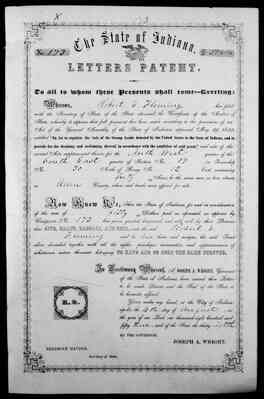 The State of Indiana.
No. 173
LETTERS PATENT.
To all to whom these Presents shall come—Greeting:
Whereas, Robert E. Fleming has filed
with the Secretary of State of the State aforesaid the Certificate of the Auditor of
State, whereby it appears that full payment has been made according to the provisions of an
Act of the General Assembly of the State of Indiana approved May 29, 1852,
entitled "An Act to regulate the Sale of the Swamp Lands donated by the United States to the State of Indiana, and to
provide for the draining and reclaiming thereof, in accordance with the condition of said grant;" and
of the North West quarter of the
South East quarter of Section No. 19 in Township
No. 30 North of Range No. 12 East containing
forty Acres
Allen County, where said tract was offered for sale.
Now Know Ye, That the State of Indiana, for and in consideration
of the sum of Fifty Dollars
173 has given, granted, bargained and sold, and by these Presents
does GIVE, GRANT, BARGAIN, AND SELL unto the said Robert E.
Fleming and to heirs and assigns, the said Tract
above described together with all the rights, privileges, immunities, and appurtenances of
whatsoever nature thereunto belonging, TO HAVE AND TO HOLD THE SAME FOREVER.
In Testimony Whereof, I, JOSEPH A. WRIGHT, Governor
of the State of Indiana, have caused these Letters
to be made Patent, and the Seal of the State to
be hereunto affixed.
Given under my hand, at the City of Indianapolis
the day of August in
the year of our Lord one thousand eight hundred and
fifty three, and of the State the thirty
BY THE GOVERNOR.
JOSEPH A. WRIGHT.
NEHEMIAH HAYDEN,
Secretary of State.